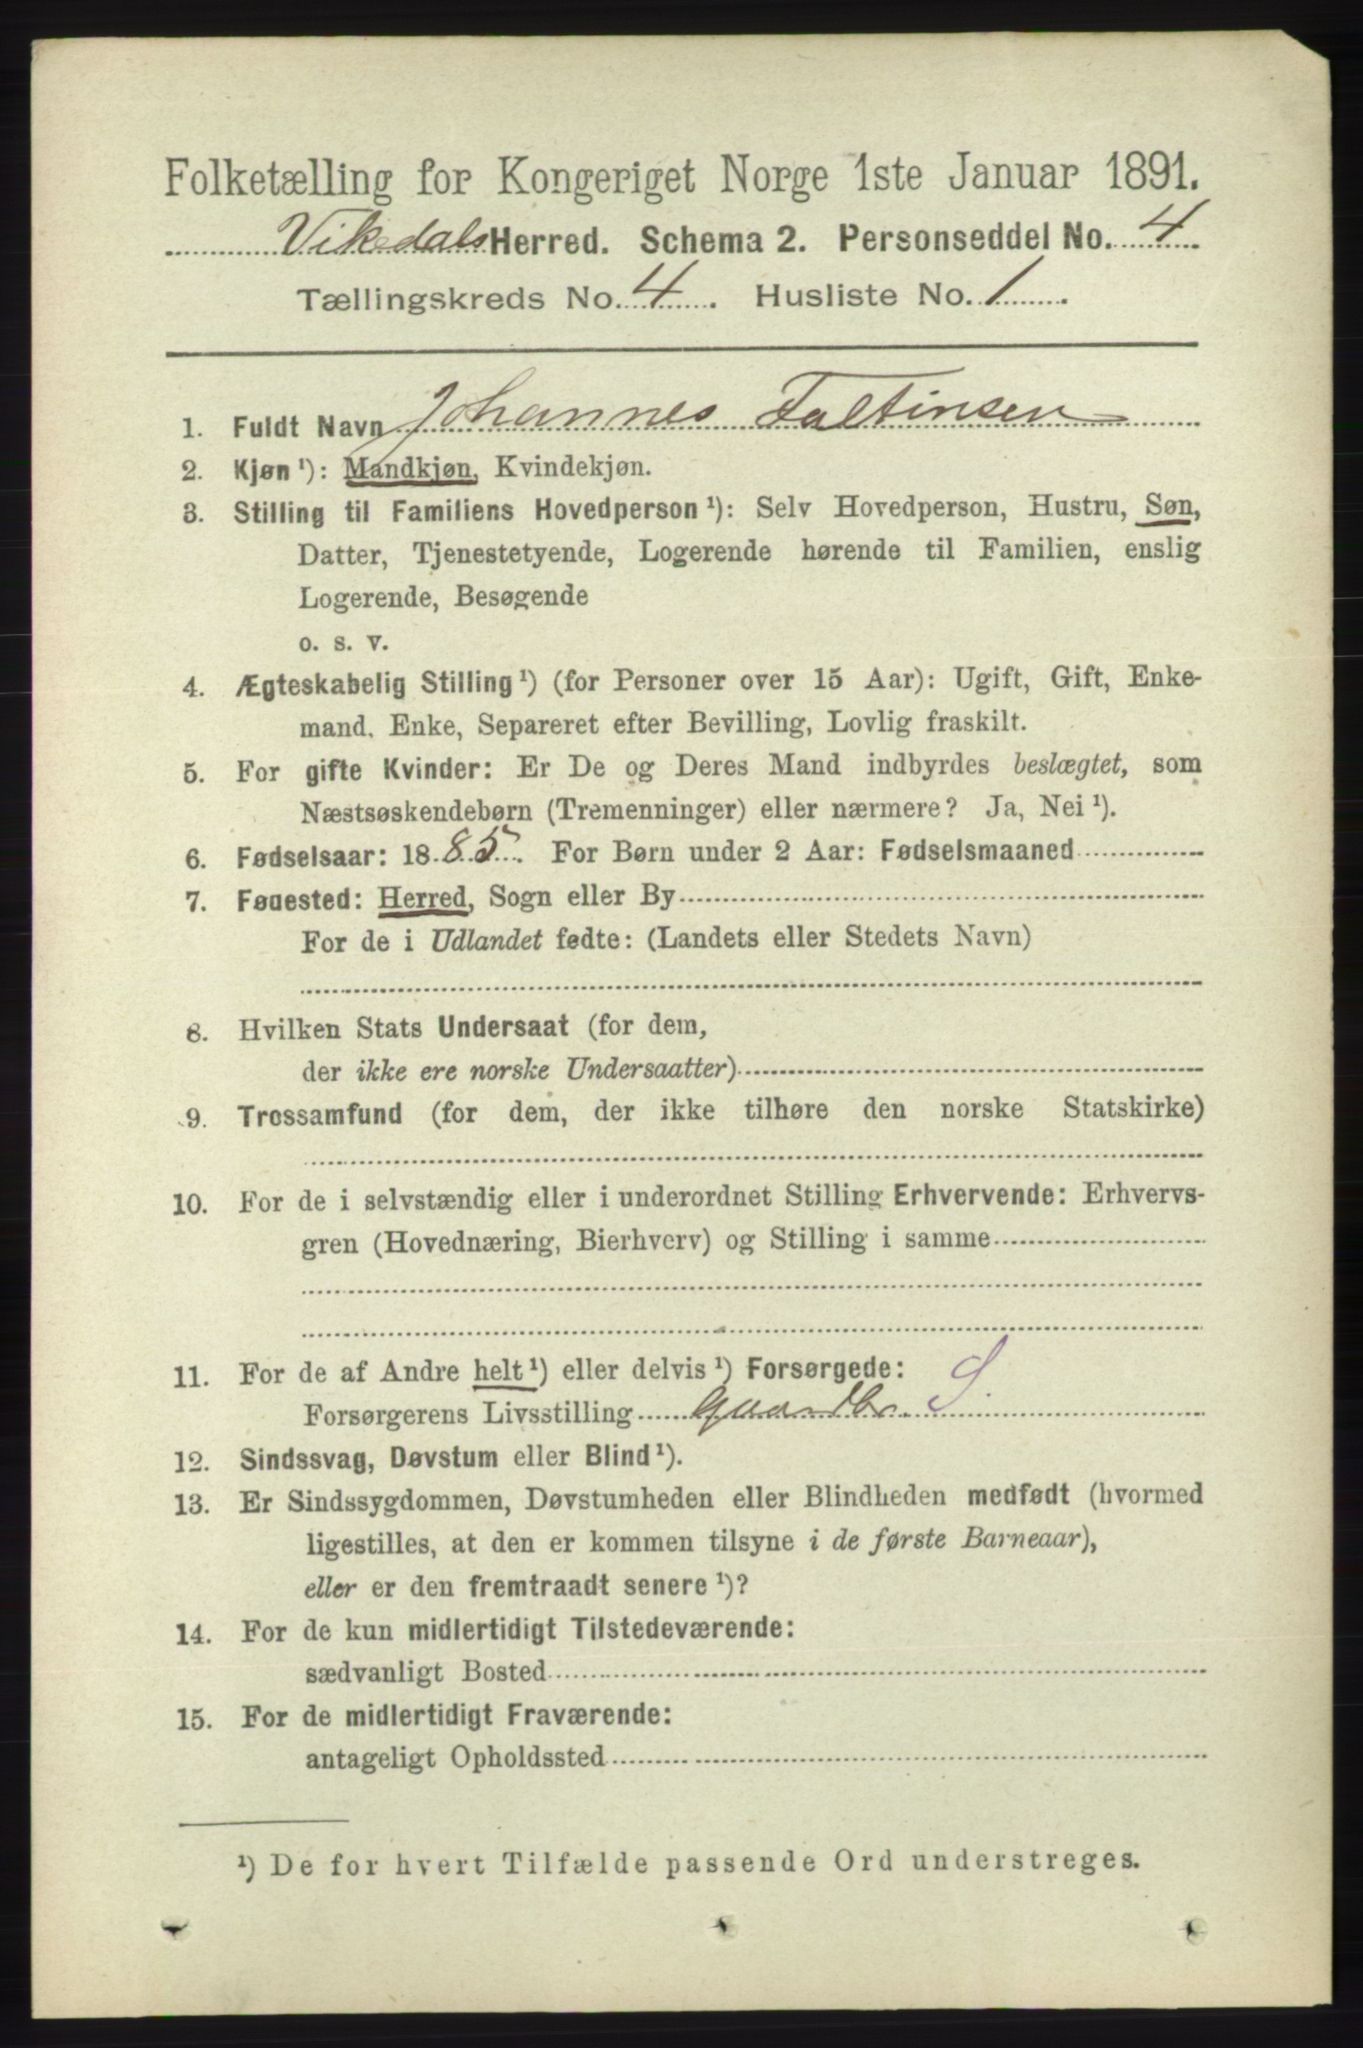 Folketælling for Kongeriget Norge 1ste Januar 1891.
Vikedals Herred. Schema 2. Personseddel No. 4
Tællingskreds No. 4. Husliste No. 1
1. Fuldt Navn Johannes Faltinsen
2. Kjøn ¹): Mandkjøn, Kvindekjøn.
3. Stilling til Familiens Hovedperson ¹): Selv Hovedperson, Hustru, Søn,
Datter, Tjenestetyende, Logerende hørende til Familien, enslig
Logerende, Besøgende
o. s. v.
4. Ægteskabelig Stilling ¹) (for Personer over 15 Aar): Ugift, Gift, Enke-
mand, Enke, Separeret efter Bevilling, Lovlig fraskilt.
5. For gifte Kvinder: Er De og Deres Mand indbyrdes beslægtet, som
Næstsøskendebørn (Tremenninger) eller nærmere? Ja, Nei ¹).
6. Fødselsaar: 1885. For Børn under 2 Aar: Fødselsmaaned
7. Fødested: Herred, Sogn eller By
For de i Udlandet fødte: (Landets eller Stedets Navn)
8. Hvilken Stats Undersaat (for dem,
der ikke ere norske Undersaatter)
9. Trossamfund (for dem, der ikke tilhøre den norske Statskirke)
10. For de i selvstændig eller i underordnet Stilling Erhvervende: Erhvervs-
gren (Hovednæring, Bierhverv) og Stilling i samme
11. For de af Andre helt ¹) eller delvis ¹) Forsørgede: S.
Forsørgerens Livsstilling Gaardbr.
12. Sindssvag, Døvstum eller Blind ¹).
13. Er Sindssygdommen, Døvstumheden eller Blindheden medfødt (hvormed
ligestilles, at den er kommen tilsyne i de første Barneaar),
eller er den fremtraadt senere ¹)?
14. For de kun midlertidigt Tilstedeværende:
sædvanligt Bosted
15. For de midlertidigt Fraværende:
antageligt Opholdssted
¹) De for hvert Tilfælde passende Ord understreges.